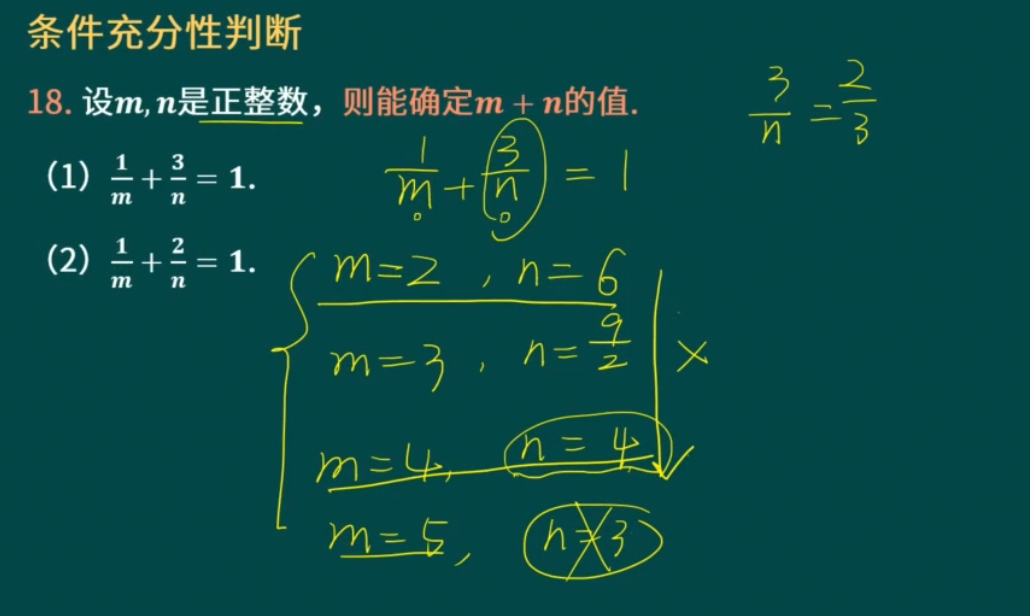 条件充分性判断
18. 设m, n是正整数，则能确定m + n的值.
3/n = 2/3
（1）1/m + 3/n = 1.
1/m + 3/n = 1
（2）1/m + 2/n = 1.
m=2 , n=6
m=3 , n=9/2 ×
m=4, n=4 ✓
m=5, n=3